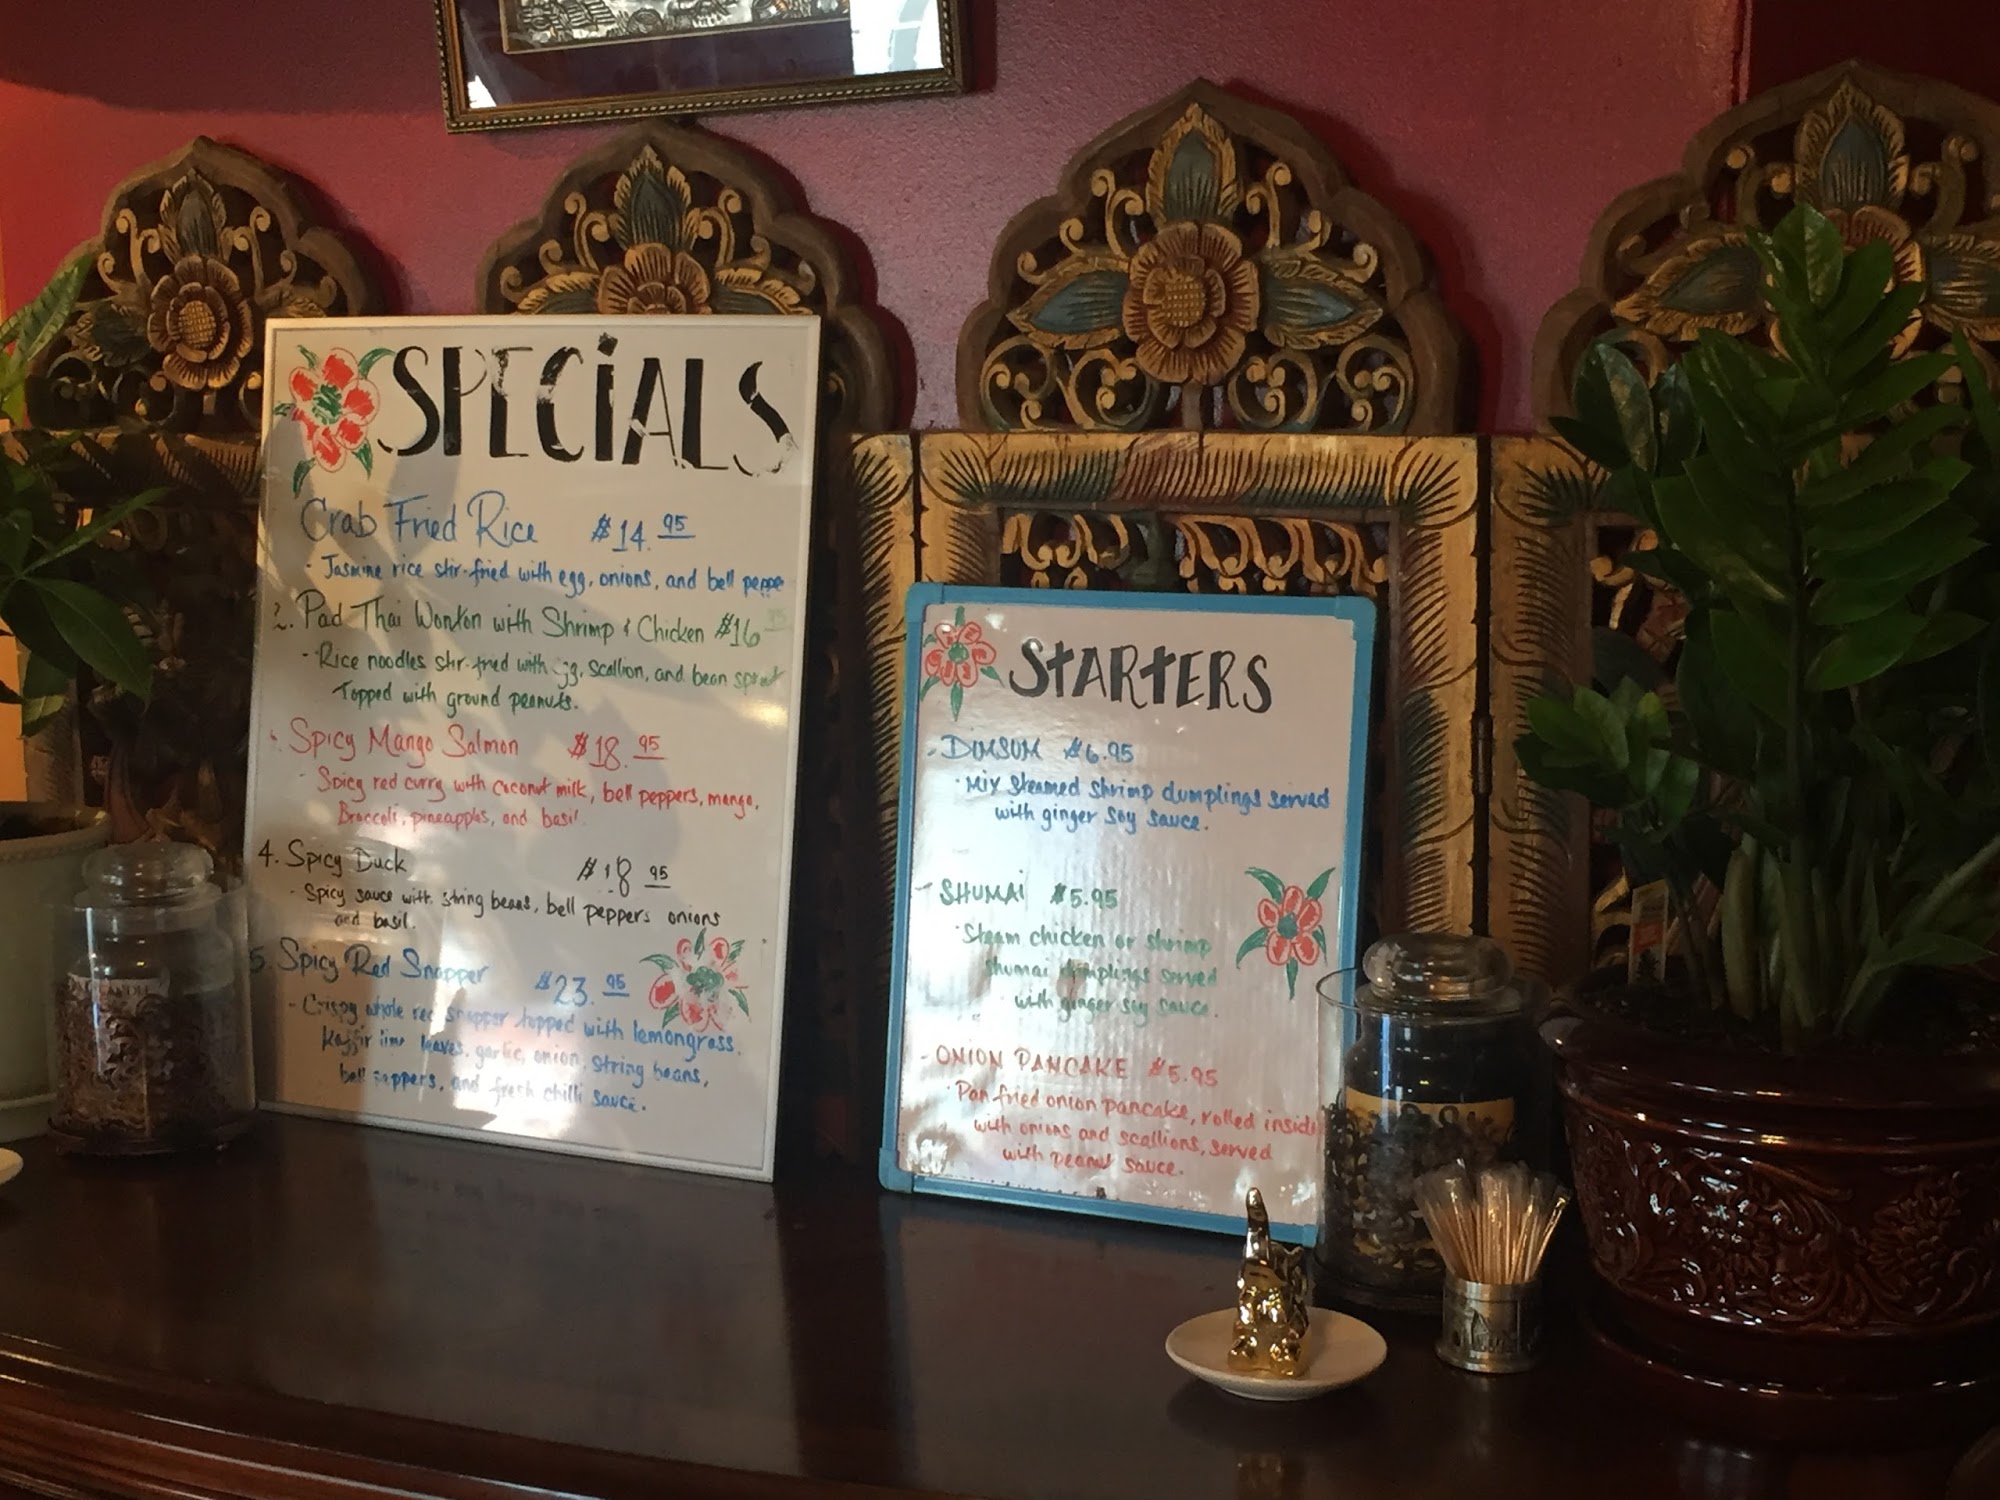 SPECiALS
Crab Fried Rice $14.95
- Jasmine rice stir-fried with egg, onions, and bell peppe
2. Pad Thai Wonton with Shrimp & Chicken $16.95
- Rice noodles stir-fried with scallion, and bean sprout
Topped with ground peanuts.
Spicy Mango Salmon $18.95
- Spicy red curry with coconut milk, bell peppers, mango,
Broccoli, pineapples, and basil.
4. Spicy Duck $18.95
- Spicy sauce with string beans, bell peppers onions
and basil.
5. Spicy Red Snapper $23.95
- Crispy whole red snapper topped with lemongrass,
Kaffir lime leaves, garlic, onion, string beans,
bell peppers, and fresh chilli sauce.
STARTERS
- DIMSUM $6.95
- Mix steamed shrimp dumplings served
with ginger soy sauce.
- SHUMAi $5.95
- Steam chicken or shrimp
shumai dumplings served
with ginger soy sauce.
- ONION PANCAKE $5.95
- Pan fried onion pancake, rolled inside
with onions and scallions, served
with peanut sauce.